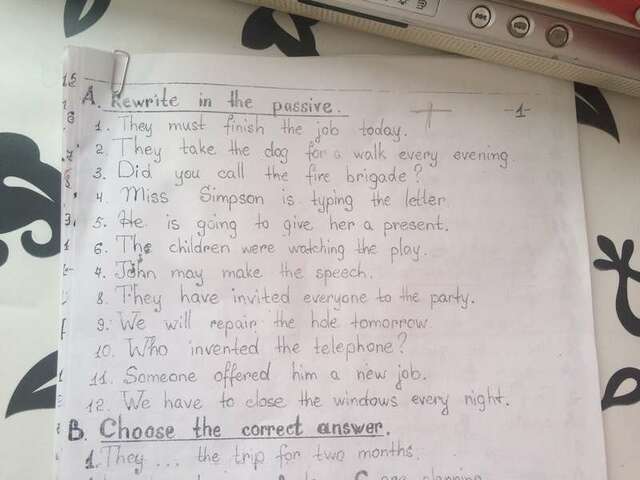 A. Rewrite in the passive.
-1-
1. They must finish the job today.
2. They take the dog for a walk every evening.
3. Did you call the fire brigade?
4. Miss Simpson is typing the letter
5. He is going to give her a present.
6. The children were watching the play.
4. John may make the speech.
8. They have invited everyone to the party.
9. We will repair the hole tomorrow
10. Who invented the telephone?
11. Someone offered him a new job.
12. We have to close the windows every night.
B. Choose the correct answer.
1. They ... the trip for two months.